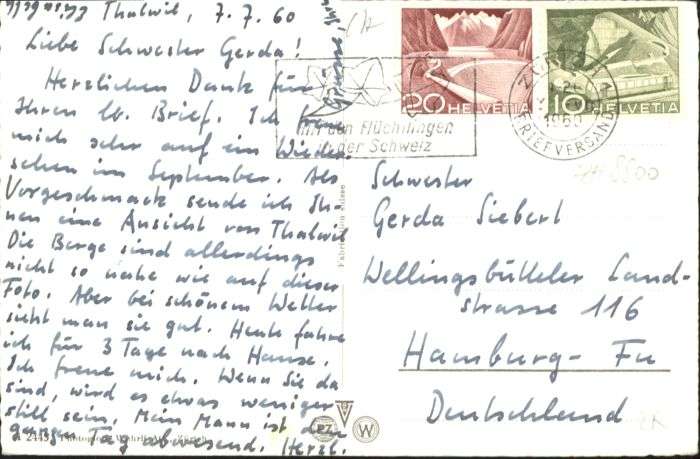 Thalwil, 7.7.60
Liebe Schwester Gerda!
Herzlichen Dank für
Ihren lb. Brief. Ich freue
mich sehr auf ein Wieder-
sehen im September. Als
Vorgeschmack sende ich Ih-
nen eine Ansicht von Thalwil
Die Berge sind allerdings
nicht so nahe wie auf dieser
Foto. Aber bei schönem Wetter
sieht man sie gut. Heute fahre
ich für 3 Tage nach Hause.
Ich freue mich. Wenn Sie da
sind, wird es etwas weniger
still sein. Mein Mann ist den
ganzen Tag abwesend. Herzl.
20 HELVETIA
10 HELVETIA
mit den Flüchtlingen
in der Schweiz
ZÜRICH
1960
BRIEFVERSAND
Schwester
Gerda Siebert
Wellingsbütteler Land-
strasse 116
Hamburg-Fu
Deutschland
PZ
W